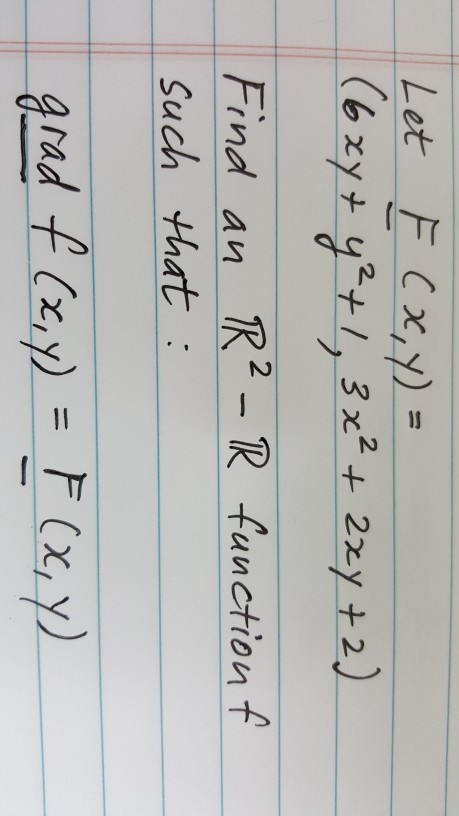 Let F (x, y) =
(6xy + y² + 1, 3x² + 2xy + 2)
Find an ℝ² - ℝ function f
such that :
grad f (x, y) = F (x, y)